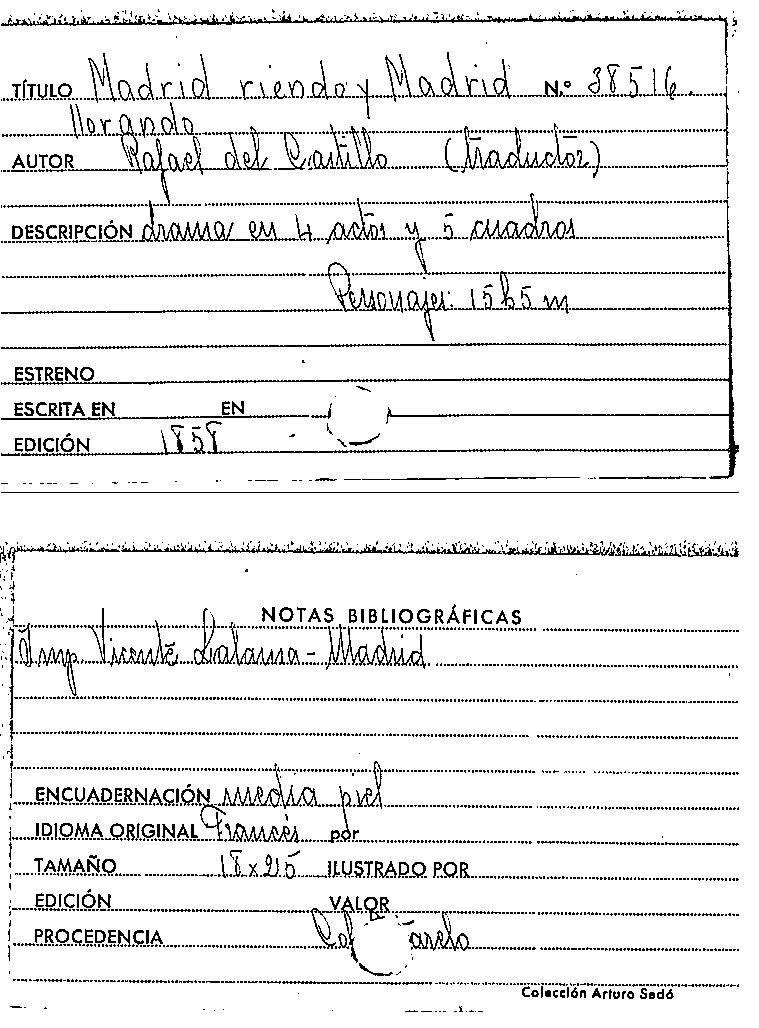 TÍTULO Madrid riendo y Madrid N.º 38516.
llorando
AUTOR Rafael del Castillo (traductor)
DESCRIPCIÓN drama en 4 actos y 5 cuadros
Personajes: 15 h 5 m
ESTRENO
ESCRITA EN EN
EDICIÓN 1858
NOTAS BIBLIOGRÁFICAS
Imp Vicente Lalama - Madrid
ENCUADERNACIÓN media piel
IDIOMA ORIGINAL Francés por
TAMAÑO 18 x 25 ILUSTRADO POR
EDICIÓN VALOR
PROCEDENCIA
Colección Arturo Sedó